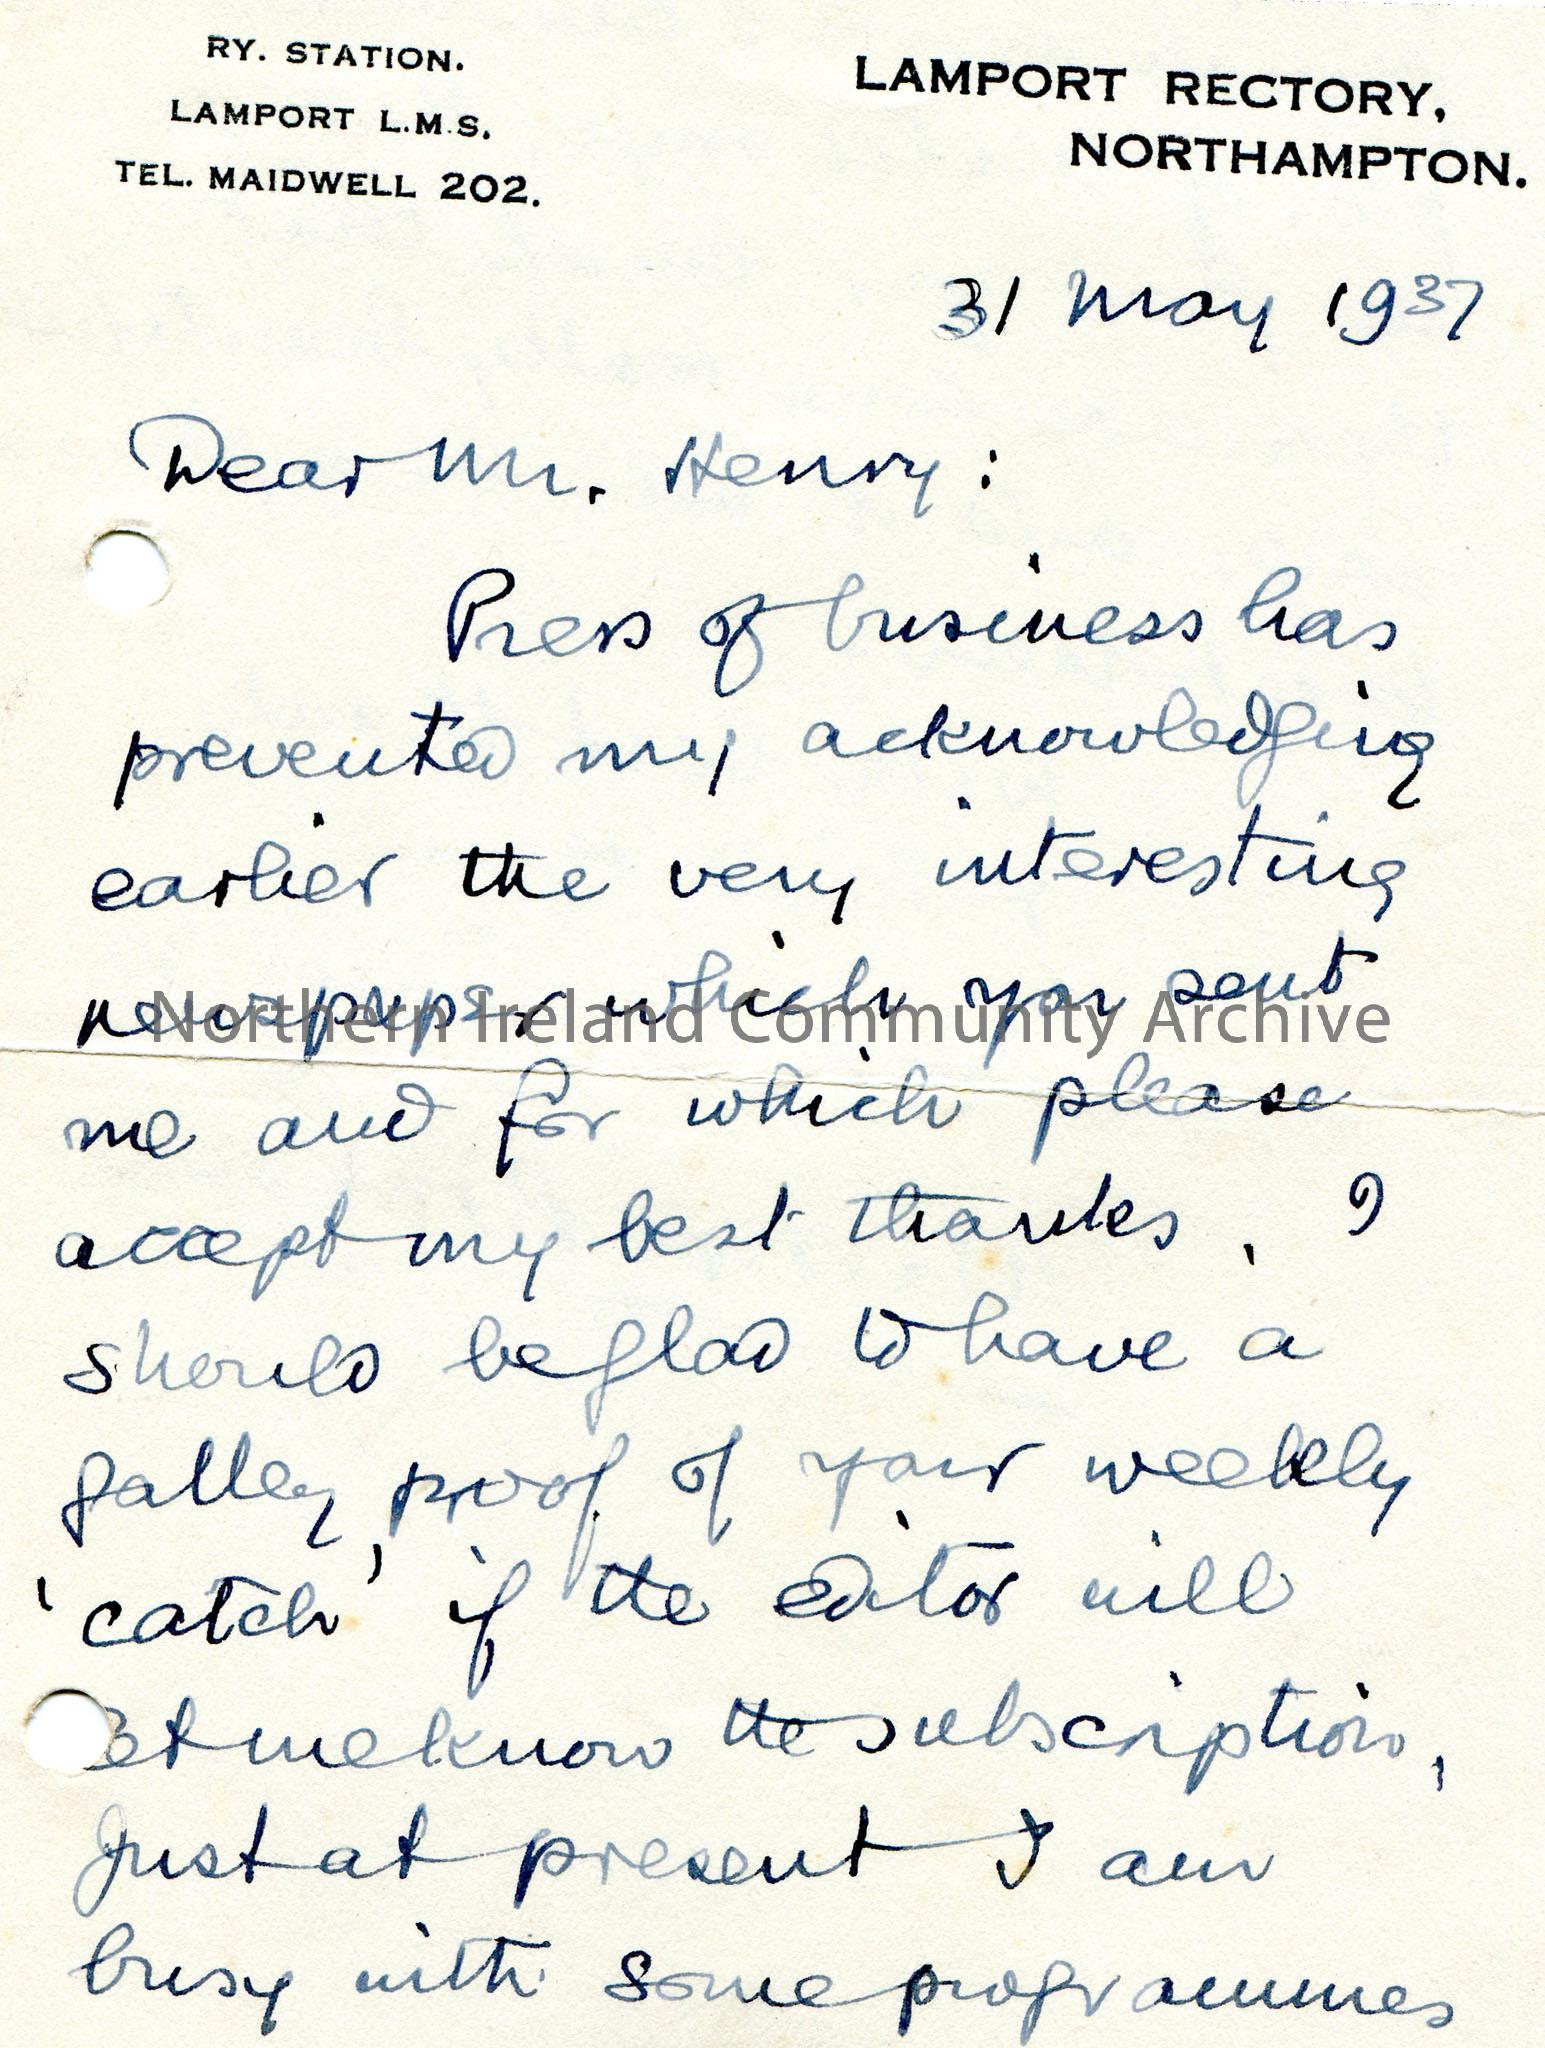 RY. STATION.
LAMPORT L.M.S.
TEL. MAIDWELL 202.
LAMPORT RECTORY,
NORTHAMPTON.
31 May 1937
Dear Mr. Henry:
Press of business has
prevented my acknowledging
earlier the very interesting
newspaper which you sent
Northern Ireland Community Archive
me and for which please
accept my best thanks. I
should be glad to have a
galley proof of your weekly
'catch' if the editor will
let me know the subscription,
Just at present I am
busy with some programmes